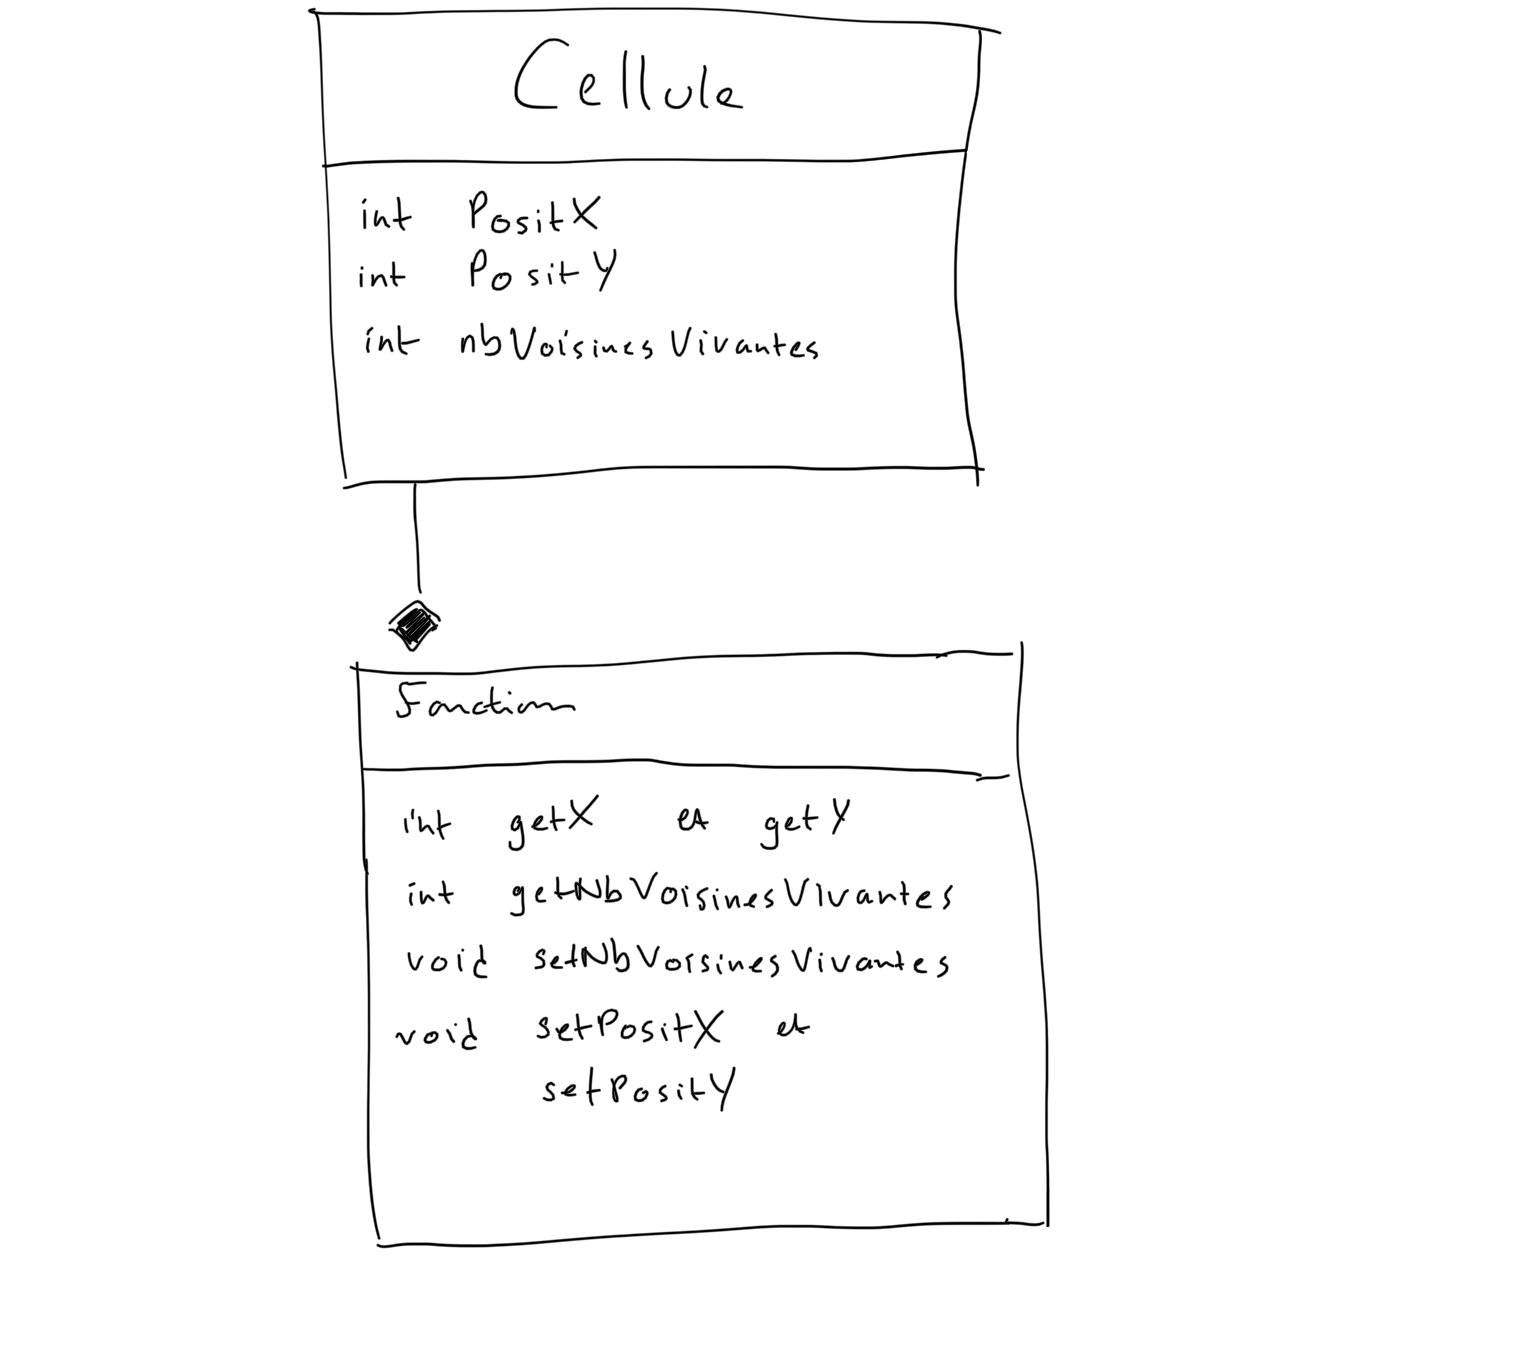 Cellule
int PositX
int PositY
int nbVoisinesVivantes
Fonction
int getX et getY
int getNbVoisinesVivantes
void setNbVoisinesVivantes
void setPositX et
setPositY